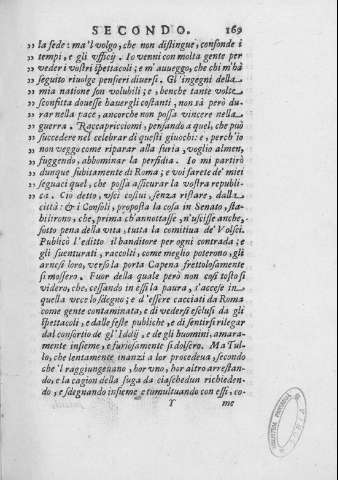 SECONDO. 169
„ la fede: ma'l volgo, che non distingue, confonde i
„ tempi, e gli vfficij. Io venni con molta gente per
„ veder i vostri spettacoli; e m' auueggo, che chi m'hà
„ seguito riuolge pensieri diuersi. Gli ingegni della
„ mia natione son volubili; e, benche tante volte
„ sconfitta douesse hauergli costanti, non sà però du-
„ rar nella pace, ancorche non possa vincere nella
„ guerra. Raccapricciomi, pensando a quel, che può
„ succedere nel celebrar di questi giuochi: e, perch'io
„ non veggo come riparar alla furia, voglio almen,
„ fuggendo, abbominar la perfidia. Io mi partirò
„ dunque subitamente di Roma; e voi farete de' miei
„ seguaci quel, che possa assicurar la vostra republi-
„ ca. Ciò detto, vscì costui senza ristare, dalla
città: & i Consoli, proposta la cosa in Senato, sta-
bilirono, che, prima ch'annottasse, n'vscisse anche,
sotto pena della vita, tutta la comitiua de' Volsci.
Publicò l'editto il banditore per ogni contrada; e
gli suenturati, raccolti, come meglio poterono, gli
arnesi loro, verso la porta Capena frettolosamente
si mossero. Fuor della quale però non così tosto si
videro, che, cessando in essi la paura, s'accese in
quella vece lo sdegno; e d'essere cacciati da Roma
come gente contaminata, e di vedersi esclusi da gli
spettacoli, e dalle feste publiche, e di sentirsi rilegar
dal consortio de gl'Iddij, e de gli huomini, amara-
mente insieme, e furiosamente si dolsero. Ma Tul-
lo, che lentamente inanzi a lor procedeua, secondo
che 'l raggiungeuano, hor vno, hor altro arrestan-
do, e la cagion della fuga da ciaschedun richieden-
do, e sdegnando insieme e tumultuando con essi, co-
Y me